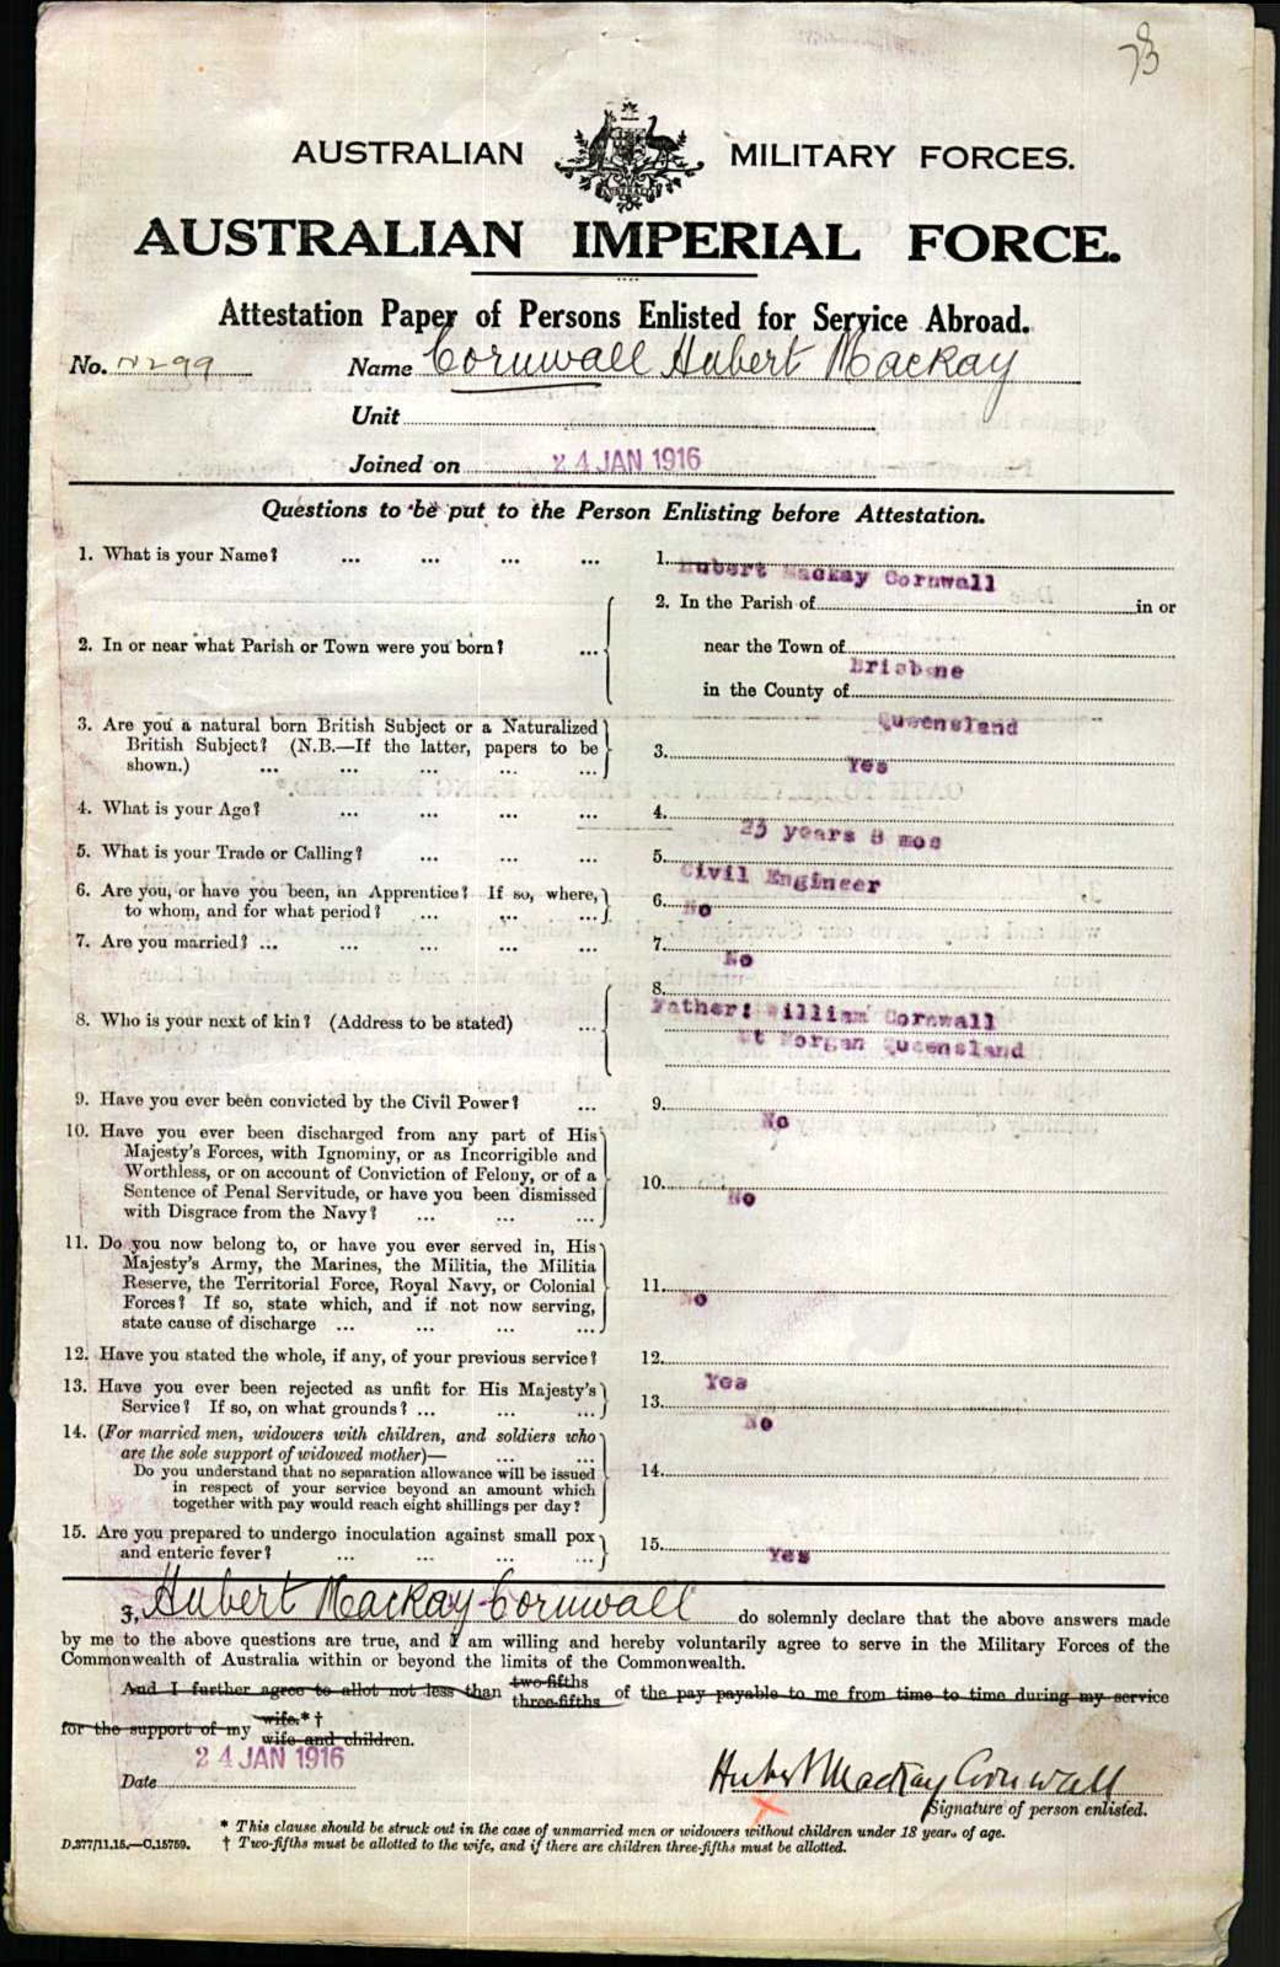 73
AUSTRALIAN MILITARY FORCES.
AUSTRALIAN IMPERIAL FORCE.
Attestation Paper of Persons Enlisted for Service Abroad.
No. N299 Name Cornwall Hubert Mackay
Unit
Joined on 24 JAN 1916
Questions to be put to the Person Enlisting before Attestation.
1. What is your Name? ... ... ... ... 1. Hubert Mackay Cornwall
2. In or near what Parish or Town were you born? ... 2. In the Parish of in or
near the Town of Brisbane
in the County of Queensland
3. Are you a natural born British Subject or a Naturalized
British Subject? (N.B.—If the latter, papers to be 3. Yes
shown.) ... ... ... ... ...
4. What is your Age? ... ... ... ... 4. 23 years 8 mos
5. What is your Trade or Calling? ... ... ... 5. Civil Engineer
6. Are you, or have you been, an Apprentice? If so, where, 6. No
to whom, and for what period? ... ... ...
7. Are you married? ... ... ... ... ... 7. No
8. Who is your next of kin? (Address to be stated) ... 8. Father: William Cornwall
Mt Morgan Queensland
9. Have you ever been convicted by the Civil Power? ... 9. No
10. Have you ever been discharged from any part of His
Majesty's Forces, with Ignominy, or as Incorrigible and
Worthless, or on account of Conviction of Felony, or of a
Sentence of Penal Servitude, or have you been dismissed 10. No
with Disgrace from the Navy? ... ... ...
11. Do you now belong to, or have you ever served in, His
Majesty's Army, the Marines, the Militia, the Militia
Reserve, the Territorial Force, Royal Navy, or Colonial 11. No
Forces? If so, state which, and if not now serving,
state cause of discharge ... ... ... ...
12. Have you stated the whole, if any, of your previous service? 12. Yes
13. Have you ever been rejected as unfit for His Majesty's
Service? If so, on what grounds? ... ... ... 13. No
14. (For married men, widowers with children, and soldiers who
are the sole support of widowed mother)— ... ...
Do you understand that no separation allowance will be issued 14.
in respect of your service beyond an amount which
together with pay would reach eight shillings per day?
15. Are you prepared to undergo inoculation against small pox
and enteric fever? ... ... ... ... 15. Yes
I, Hubert Mackay Cornwall do solemnly declare that the above answers made
by me to the above questions are true, and I am willing and hereby voluntarily agree to serve in the Military Forces of the
Commonwealth of Australia within or beyond the limits of the Commonwealth.
And I further agree to allot not less than two-fifths three-fifths of the pay payable to me from time to time during my service
for the support of my wife.*† wife and children.
24 JAN 1916
Date
Hubert Mackay Cornwall
Signature of person enlisted.
* This clause should be struck out in the case of unmarried men or widowers without children under 18 years of age.
D.377/11.15.—C.15759. † Two-fifths must be allotted to the wife, and if there are children three-fifths must be allotted.